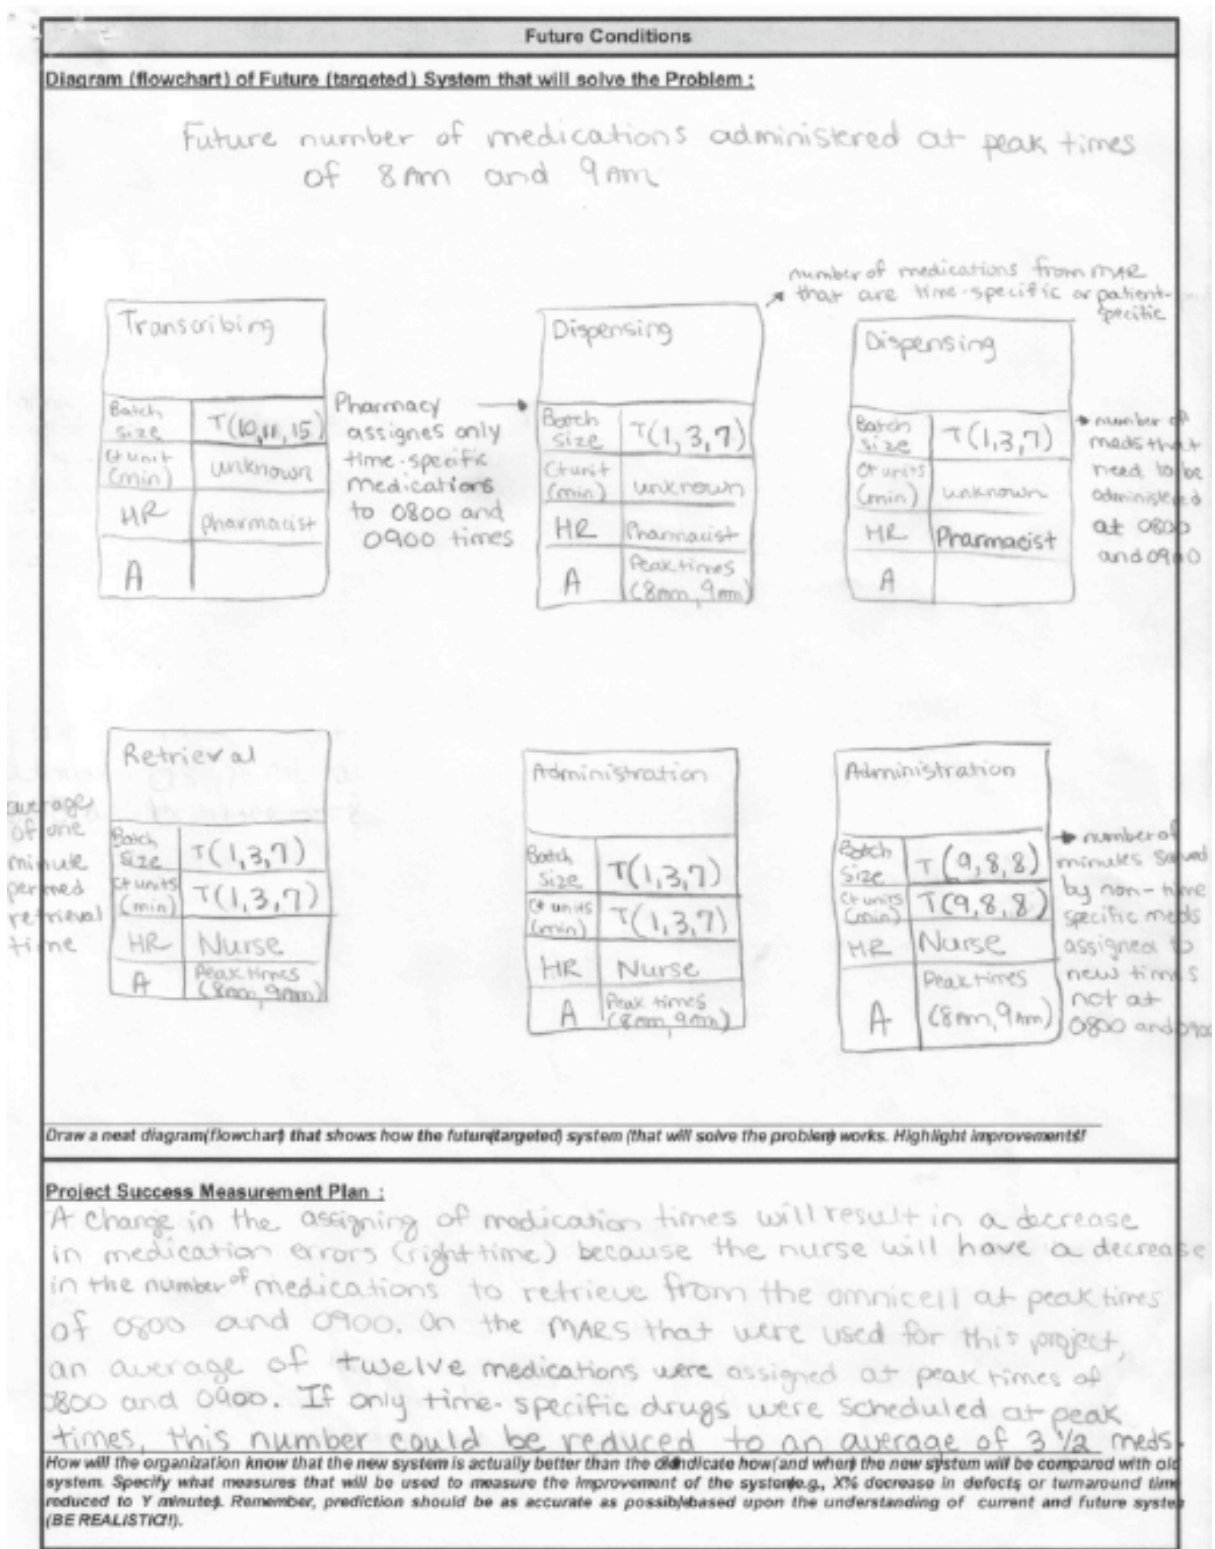 Future Conditions
Diagram (flowchart) of Future (targeted) System that will solve the Problem :
Future number of medications administered at peak times
of 8 Am and 9 Am
number of medications from MAR
that are time-specific or patient-
specific
Transcribing
Batch size T(10,11,15)
Ct unit (min) unknown
HR pharmacist
A
Pharmacy
assignes only
time-specific
medications
to 0800 and
0900 times
Dispensing
Batch size T(1,3,7)
Ct unit (min) unknown
HR Pharmacist
A Peak times (8am, 9am)
Dispensing
Batch size T(1,3,7)
Ct units (min) unknown
HR Pharmacist
A
number of
meds that
need to be
administered
at 0800
and 0900
average
of one
minute
per med
retrieval
time
Retrieval
Batch size T(1,3,7)
Ct units (min) T(1,3,7)
HR Nurse
A Peak times (8am, 9am)
Administration
Batch size T(1,3,7)
Ct units (min) T(1,3,7)
HR Nurse
A Peak times (8am, 9am)
Administration
Batch size T(9,8,8)
Ct units (min) T(9,8,8)
HR Nurse
A Peak times (8am, 9am)
number of
minutes saved
by non-time
specific meds
assigned to
new times
not at
0800 and 0900
Draw a neat diagram(flowchart) that shows how the future(targeted) system (that will solve the problem) works. Highlight improvements!
Project Success Measurement Plan :
A change in the assigning of medication times will result in a decrease
in medication errors (right time) because the nurse will have a decrease
in the number of medications to retrieve from the omnicell at peak times
of 0800 and 0900. On the MARS that were used for this project,
an average of twelve medications were assigned at peak times of
0800 and 0900. If only time-specific drugs were scheduled at peak
times, this number could be reduced to an average of 3 1/2 meds.
How will the organization know that the new system is actually better than the old indicate how(and when) the new system will be compared with old
system. Specify what measures that will be used to measure the improvement of the system e.g., X% decrease in defects or turnaround time
reduced to Y minutes). Remember, prediction should be as accurate as possible based upon the understanding of current and future system
(BE REALISTIC!!).